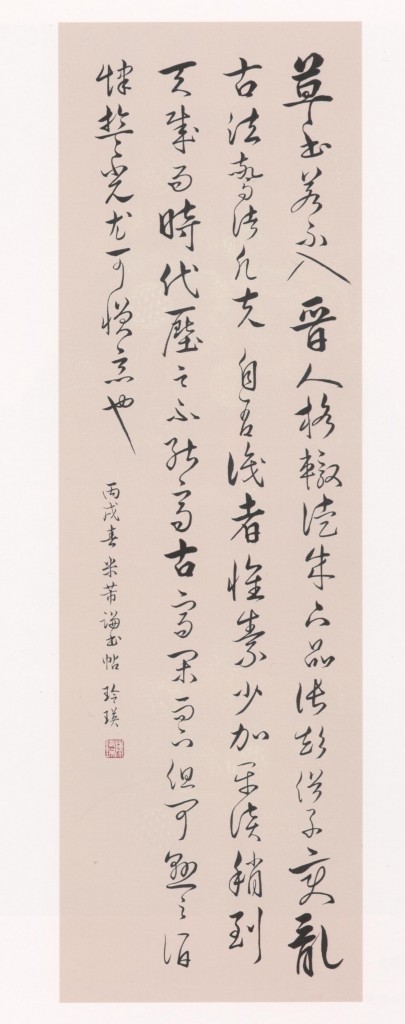 草書若不入晉人格轍徒成下品張顛俗子變亂
古法驚諸凡夫自有識者懷素少加平淡稍到
天成而時代壓之不能高古高閑而下但可懸之酒
肆光尤可憎惡也
丙戌春米芾論書帖 玲瑛